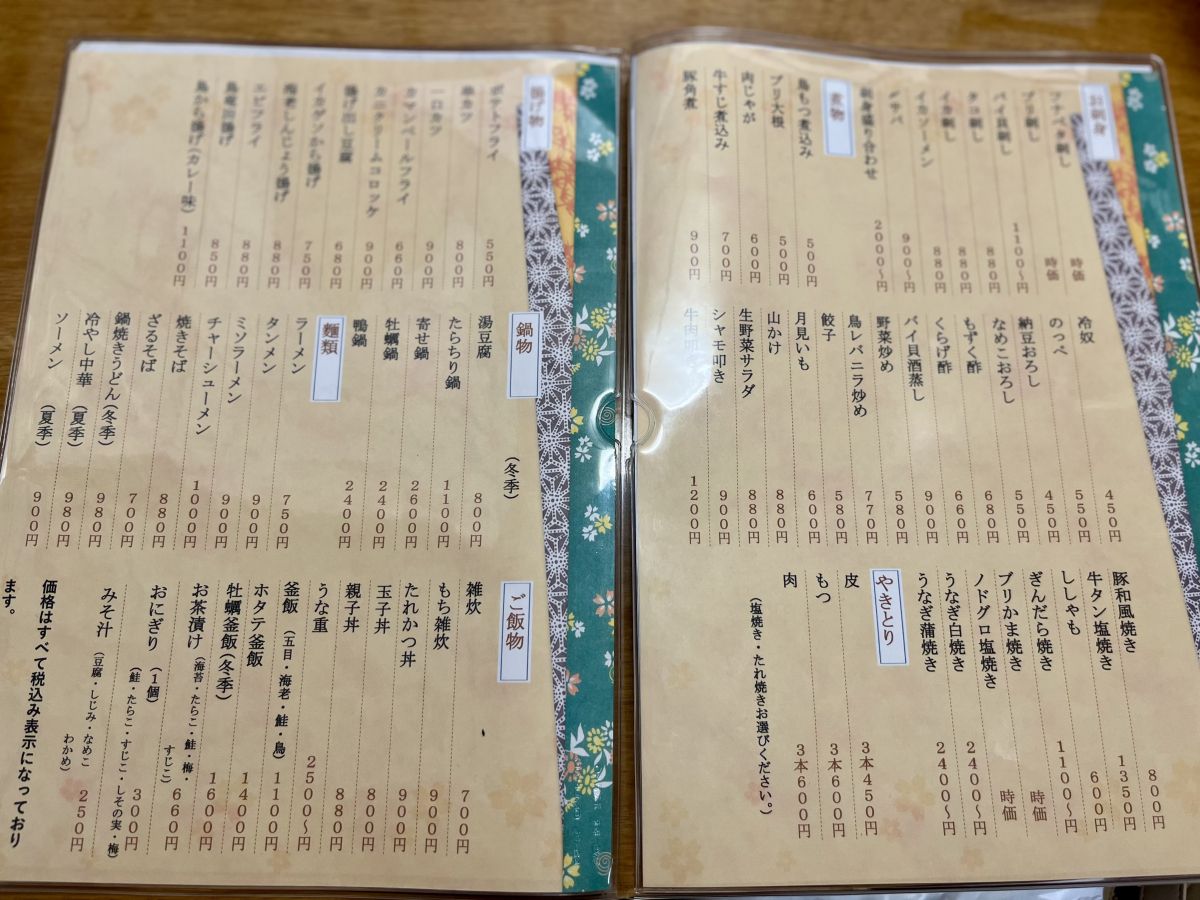 お刺身
フナベタ刺し 時価
ブリ刺し 時価
バイ貝刺し 1100〜円
タコ刺し 880円
イカ刺し 880円
イカソーメン 880円
〆サバ 900〜円
刺身盛り合わせ 2000〜円
煮物
鳥もつ煮込み 500円
ブリ大根 500円
肉じゃが 600円
牛すじ煮込み 700円
豚角煮 900円
冷奴 450円
のっぺ 550円
納豆おろし 450円
なめこおろし 550円
もずく酢 680円
くらげ酢 660円
バイ貝酒蒸し 900円
野菜炒め 580円
鳥レバニラ炒め 770円
餃子 580円
月見いも 600円
山かけ 880円
生野菜サラダ 880円
シャモ叩き 900円
牛肉叩き 1200円
豚和風焼き 800円
牛タン塩焼き 1350円
ししゃも 600円
ぎんだら焼き 1100〜円
ブリかま焼き 時価
ノドグロ塩焼き 時価
うなぎ白焼き 2400〜円
うなぎ蒲焼き 2400〜円
やきとり
皮 3本450円
もつ 3本600円
肉 3本600円
（塩焼き・たれ焼きお選びください。）
揚げ物
ポテトフライ 550円
串カツ 800円
一口カツ 900円
カマンベールフライ 660円
カニクリームコロッケ 900円
揚げ出し豆腐 680円
イカゲソから揚げ 750円
海老しんじょう揚げ 880円
エビフライ 880円
鳥竜田揚げ 850円
鳥から揚げ(カレー味) 1100円
鍋物 （冬季）
湯豆腐 800円
たらちり鍋 1100円
寄せ鍋 2600円
牡蠣鍋 2400円
鴨鍋 2400円
麺類
ラーメン 750円
タンメン 900円
ミソラーメン 900円
チャーシューメン 1000円
焼きそば 880円
ざるそば 700円
鍋焼きうどん(冬季) 980円
冷やし中華 （夏季） 980円
ソーメン （夏季） 900円
ご飯物
雑炊 700円
もち雑炊 900円
たれかつ丼 900円
玉子丼 800円
親子丼 880円
うな重 2500〜円
釜飯 （五目・海老・鮭・鳥） 1100円
ホタテ釜飯 1400円
牡蠣釜飯(冬季) 1600円
お茶漬け （海苔・たらこ・鮭・梅・すじこ） 660円
おにぎり （1個） （鮭・たらこ・すじこ・しその実・梅） 300円
みそ汁 （豆腐・しじみ・なめこ わかめ） 250円
価格はすべて税込み表示になっており
ます。